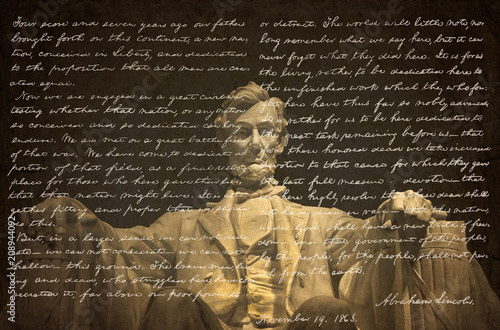 Four score and seven years ago our fathers
brought forth on this continent, a new na-
tion, conceived in Liberty, and dedicated
to the proposition that all men are cre-
ated equal.
Now we are engaged in a great civil war,
testing whether that nation, or any nation
so conceived and so dedicated can long
endure. We are met on a great battlefield
of that war. We have come to dedicate a
portion of that field, as a final resting
place for those who here gave their lives
that that nation might live. It is alto-
gether fitting and proper that we should
do this.
But, in a larger sense, we can not dedi-
cate— we can not consecrate— we can not
hallow— this ground. The brave men, liv-
ing and dead, who struggled here have con-
secrated it, far above our poor power to add
or detract. The world will little note, nor
long remember what we say here, but it can
never forget what they did here. It is for us
the living, rather, to be dedicated here to
the unfinished work which they who fou-
ght here have thus far so nobly advanced.
It is rather for us to be here dedicated to
the great task remaining before us— that
from these honored dead we take increased
devotion to that cause for which they gave
the last full measure of devotion— that
we here highly resolve that these dead shall
not have died in vain— that this nation,
under God, shall have a new birth of free-
dom— and that government of the people,
by the people, for the people, shall not per-
ish from the earth.
Abraham Lincoln.
November 19, 1863.
208944092